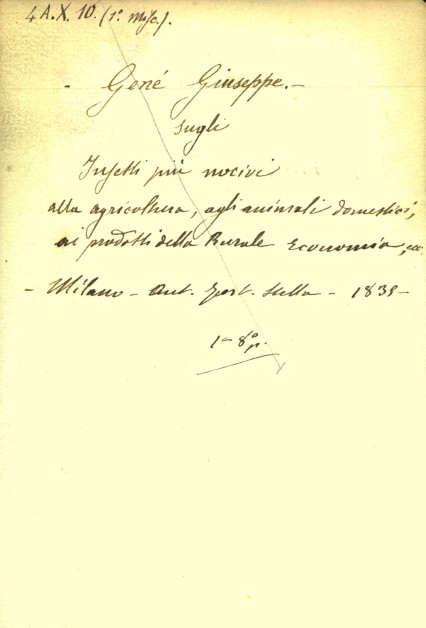 4 A.X. 10. (1ª Misc.).
- Gené Giuseppe. -
Sugli
Insetti più nocivi
alla agricoltura, agli animali domestici,
ai prodotti della Rurale Economia, ecc.
- Milano - Ant. Fort. Stella - 1835 -
1 - 8º